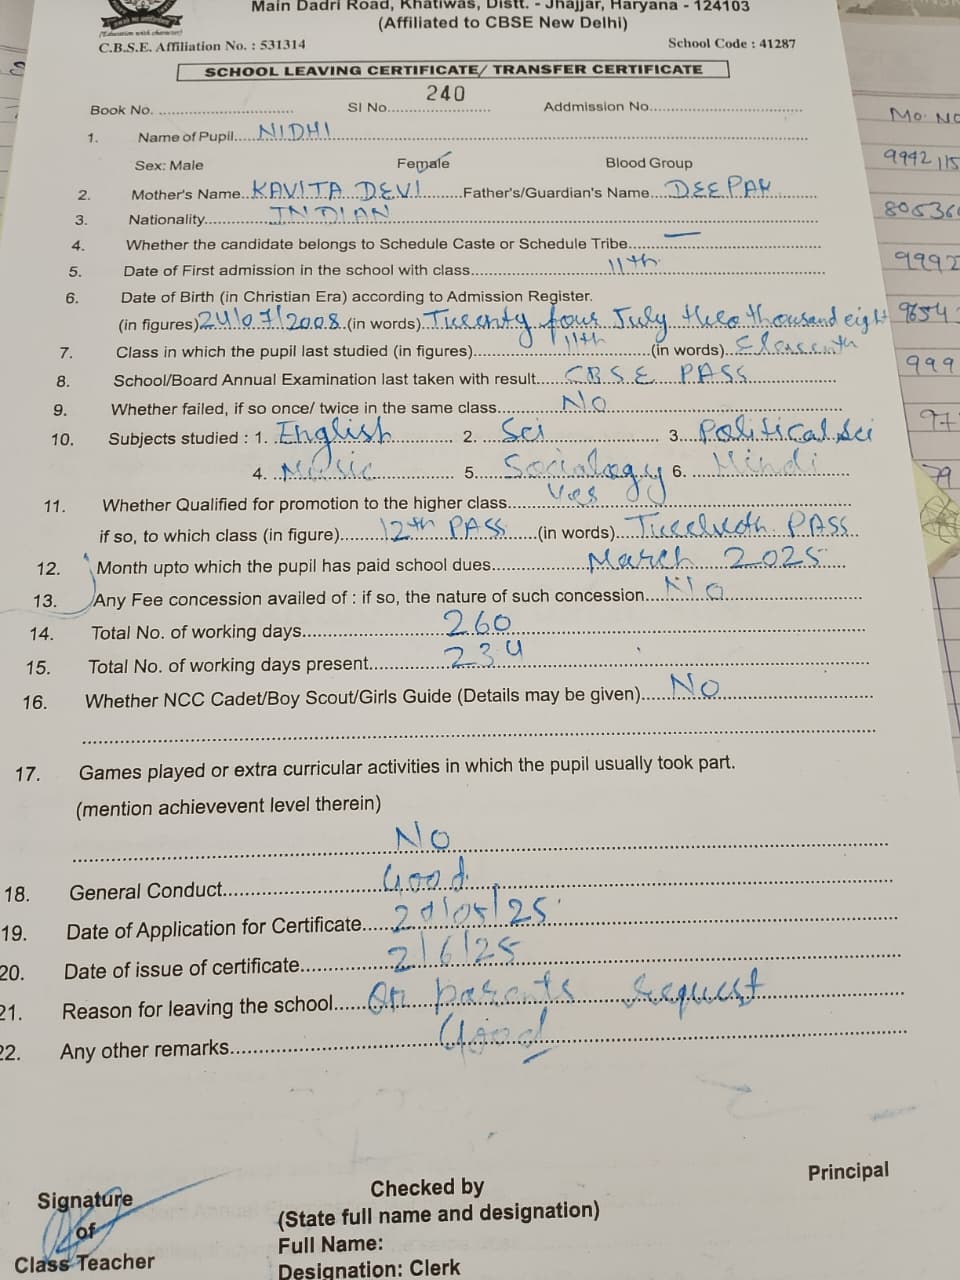 Main Dadri Road, Khatiwas, Distt. - Jhajjar, Haryana - 124103
(Affiliated to CBSE New Delhi)
(Education with character)
C.B.S.E. Affiliation No. : 531314 School Code : 41287
SCHOOL LEAVING CERTIFICATE/ TRANSFER CERTIFICATE
Book No. Sl No. 240 Addmission No.
1. Name of Pupil NIDHI
Sex: Male Female Blood Group
2. Mother's Name KAVITA DEVI Father's/Guardian's Name DEEPAK
3. Nationality INDIAN
4. Whether the candidate belongs to Schedule Caste or Schedule Tribe —
5. Date of First admission in the school with class 11th
6. Date of Birth (in Christian Era) according to Admission Register.
(in figures) 24/07/2008 (in words) Twenty four July thousand eight
7. Class in which the pupil last studied (in figures) 11th (in words)
8. School/Board Annual Examination last taken with result CBSE PASS
9. Whether failed, if so once/ twice in the same class NO
10. Subjects studied : 1. English 2. Sci 3. Political Sci
4. Music 5. Socialogy 6. Hindi
11. Whether Qualified for promotion to the higher class Yes
if so, to which class (in figure) 12th PASS (in words) PASS
12. Month upto which the pupil has paid school dues March 2025
13. Any Fee concession availed of : if so, the nature of such concession No
14. Total No. of working days 260
15. Total No. of working days present 234
16. Whether NCC Cadet/Boy Scout/Girls Guide (Details may be given) No
17. Games played or extra curricular activities in which the pupil usually took part.
(mention achievevent level therein)
No
18. General Conduct Good
19. Date of Application for Certificate
20. Date of issue of certificate 2/6/25
21. Reason for leaving the school On parents request
22. Any other remarks Good
Principal
Signature
of
Class Teacher
Checked by
(State full name and designation)
Full Name:
Designation: Clerk
Mo. No
9992
999
97
79